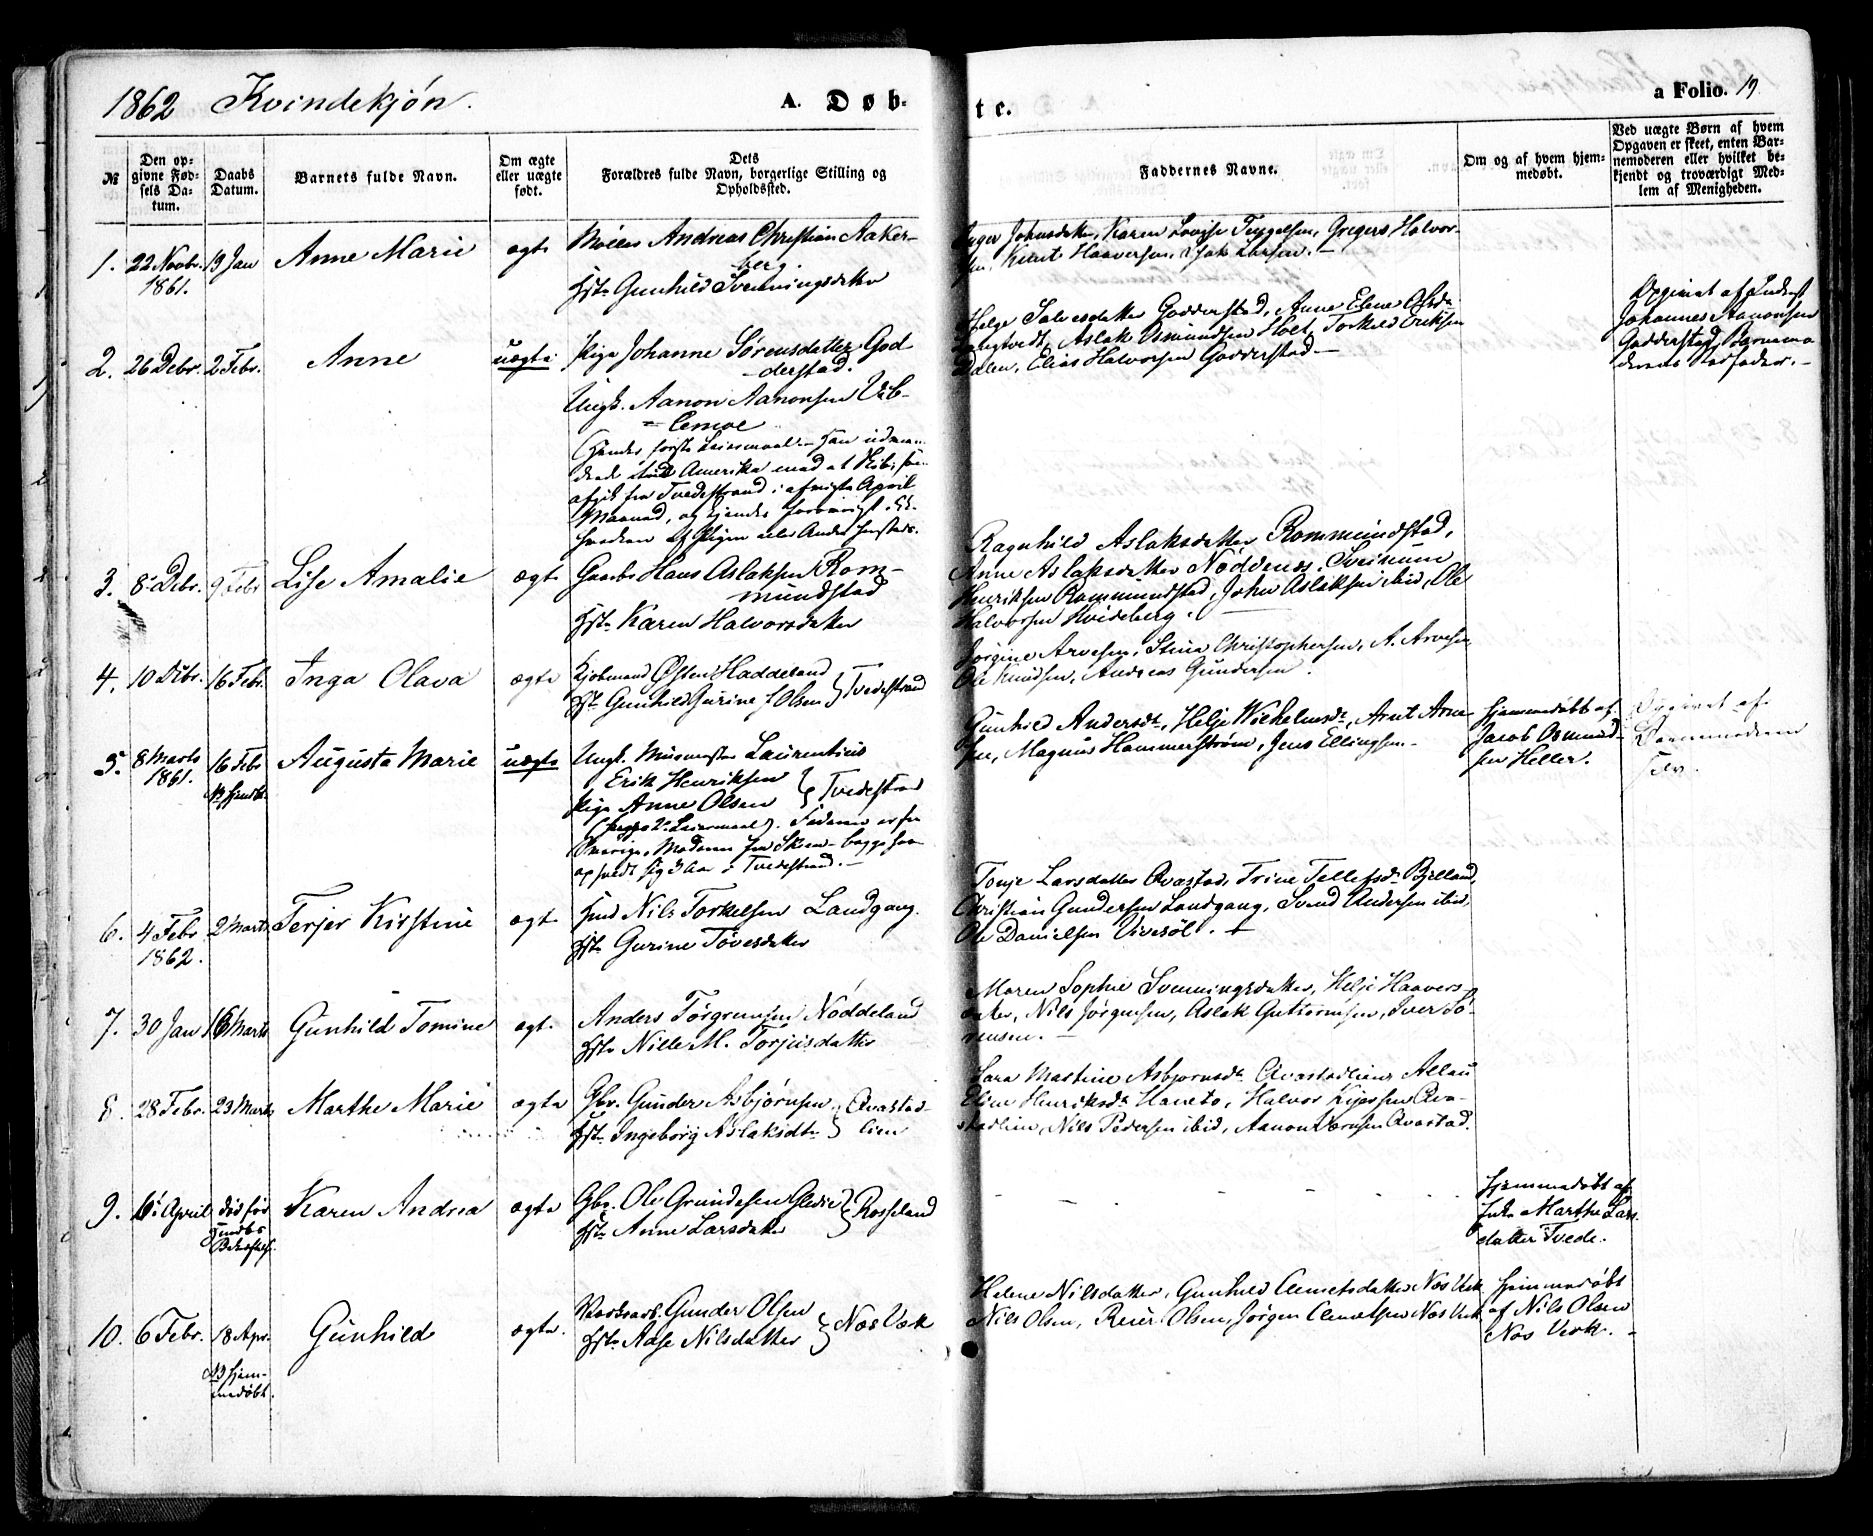 1862 Kvindekjón.
A. Døb-
te.
a Folio. 19
№
Den op-
givne Fød-
sels Da-
tum.
Daabs
Datum.
Barnets fulde Navn.
Om ægte
eller uægte
født.
Dets
Forældres fulde Navn, borgerlige Stilling og
Opholdssted.
Faddernes Navne.
Om og af hvem hjem-
medøbt.
Ved uægte Børn af hvem
Opgaven er skeet, enten Bar-
nemoderen eller hvilket be-
kjendt og troværdigt Med-
lem af Menigheden.
1. 22 Novbr. 19 Jan Anne Marie ægte
1861.
Andreas Christian Aaker-
berg.
Hst: Gunhild Svenningsdatter
Karen Lovise Gregers Halvor-
sen, Knut Haaversen, Isak Larsen. –
2. 26 Debr. 2 Febr. Anne uægte
Pige Johanne Sørensdatter God-
derstad.
Ungk. Aanon Aanonsen Ub-
lemoe
(Hendes første Leiermaal. – Han udvan-
drede Amerika med et Skib, som
afgik fra Tvedestrand i afvigte April
Maaned,
Helge Salvesdatter Godderstad, Anne Elene Olsd.
Langtvedt, Aslak Osmundsen Holt, Torkild Eriksen
Dalen, Elias Halvorsen Godderstad –
Opgivet af Inderst
Johannes Aanonsen
Godderstad, Barnemo-
derens
3. 8 Debr. 9 Febr Lise Amalie ægte
Gaardbr. Hans Aslaksen Rom-
mundstad
Hst: Karen Halvorsdatter
Ragnhild Aslaksdatter Rommundstad,
Anne Aslaksdatter Nøddenes,
Henriksen Rommundstad, John Aslaksen ibid, Ole
Halvorsen Hvideberg.
4. 10 Debr. 16 Febr. Inga Olava ægte
Kjøbmand Østen Haddeland
Hst: Gunhild Gurine f. Olsen } Tvedestrand
Jørgine Arvesen, Stina Christophersen, A. Arvesen
Ole Knudsen, Andreas Gundersen.
5. 8 Marts 16 Febr Augusta Marie uægte
1861. NB hjemdbt.
Ungk. Muurmester Laurentius
Erik Henriksen
Pige Anne Olsen } Tvedestrand
2. Leiermaal). Faderen er fra
Sverige, Moderen fra Skien – begge have
opholdt sig 3 Aar i Tvedestrand. –
Gunhild Andersdr, Helje Wilhelmsdr, Arnt Arne-
sen, Magnus Hammerstrøm, Jens Ellingsen –
Hjemmedøbt af
Jacob Osmund-
sen Heller.
Opgivet af
Barnemoderen
selv.
6. 4 Febr 2 Marts Terjer Kirstine ægte
1862.
Hmd Nils Torkelsen Landgang.
Hst: Gurine Tøvesdatter
Tonje Larsdatter Qvastad, Trine Tellefsdr Bjelland,
Christian Gundersen Landgang, Svend Andersen ibid,
Ole Danielsen Vivesøl.
7. 30 Jan 16 Marts Gunhild Tomine ægt.
Anders Torgrimsen Nøddeland
Hst: Nille M. Torjusdatter
Maren Sophie Svenningsdatter, Helje Haavers-
datter, Nils Jørgensen, Aslak Guttormsen, Iver Tø-
nnesen. –
8. 28 Febr. 23 Marts Marthe Marie ægte
Gbr. Gunder Asbjørnsen } Qvastad-
Hst: Ingeborg Aslaksdtr } lien
Sara Mastine Asbjornsdr. Qvastadlien,
Eline Henriksdr Haneto, Halvor Qva-
stadlien, Nils Pedersen ibid, Aanon Qvastad.
9. 6 April død før Karen Andrea ægte
Gbr. Ole Gundersen } Rosseland
Hst: Anne Larsdatter
– – – – –
Hjemmedøbt af
Marthe Lars-
datter Tvede.
10. 6 Febr. 18 Apr. Gunhild ægte.
NB hjem-
medøbt.
Værksarb. Gunder Olsen
Hst: Aase Nilsdatter } Næs Værk
Helene Nilsdatter, Gunhild Clemetsdatter Næs Værk
Nils Olsen, Reier Olsen, Jørgen Clemetsen Næs Værk
Hjemmedøbt
af Nils Olsen
Næs Værk. –